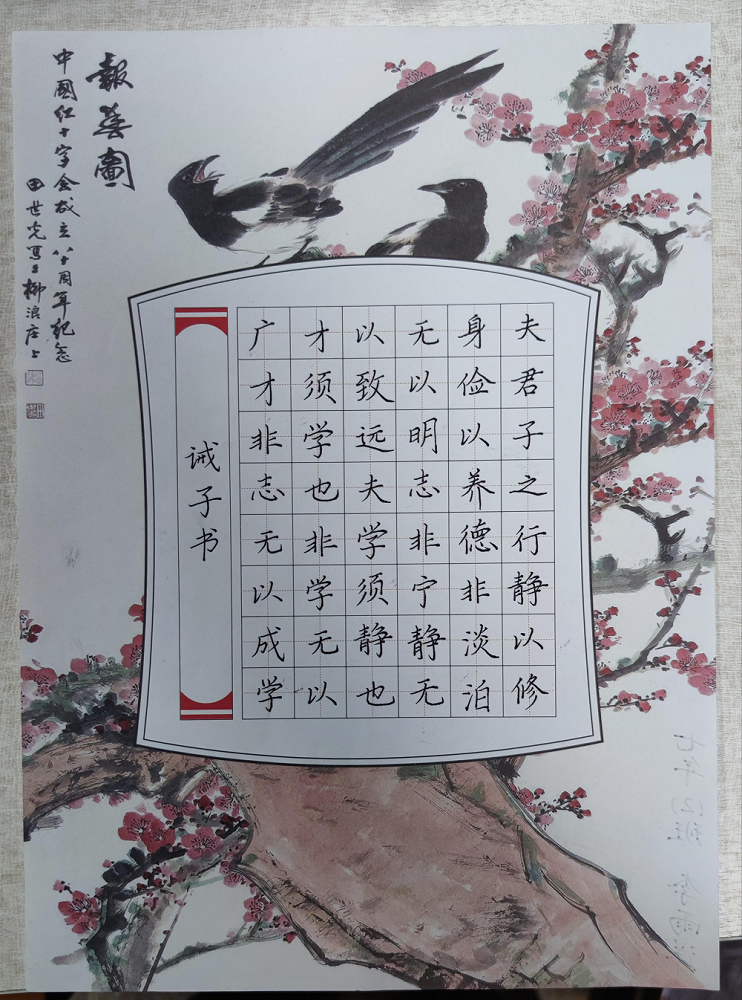 夫君子之行静以修
身俭以养德非淡泊
无以明志非宁静无
以致远夫学须静也
才须学也非学无以
广才非志无以成学
诫子书
報喜圖
中國红十字会成立八十周年纪念
田世光写于柳浪庄上
七年四班 李雨